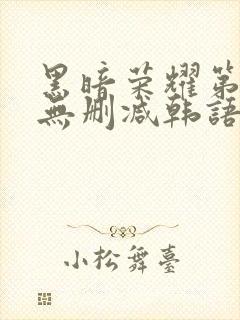 黑暗荣耀第
無删减韩語
小松舞臺